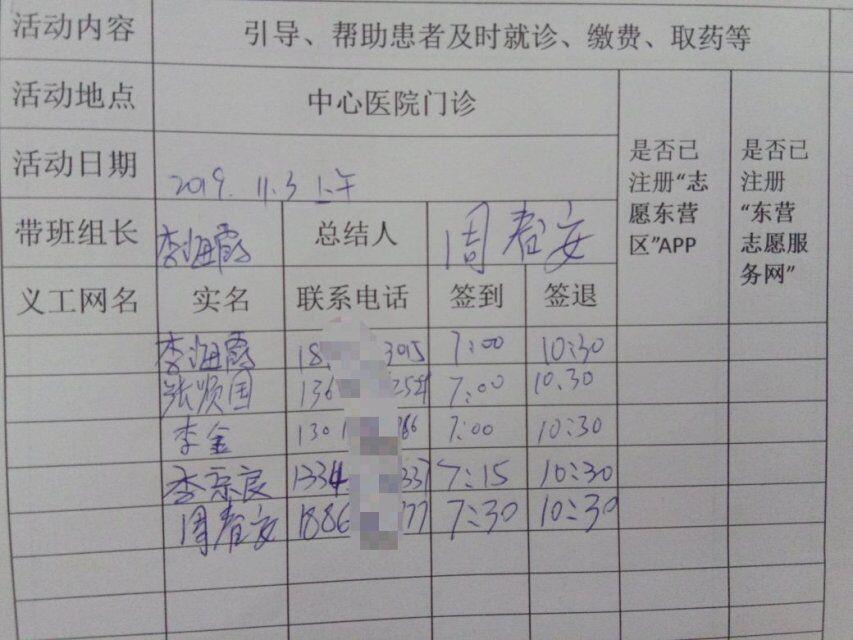 活动内容 引导、帮助患者及时就诊、缴费、取药等
活动地点 中心医院门诊
是否已注册“志愿东营区”APP
是否已注册“东营志愿服务网”
活动日期 2019.11.3 上午
带班组长 李海霞 总结人 周春安
义工网名 实名 联系电话 签到 签退
李海霞 18 3015 7:00 10:30
张顺国 136 7:00 10.30
李金 130 7:00 10:30
李京良 1334 337 7:15 10:30
周春安 1886 77 7:30 10:30